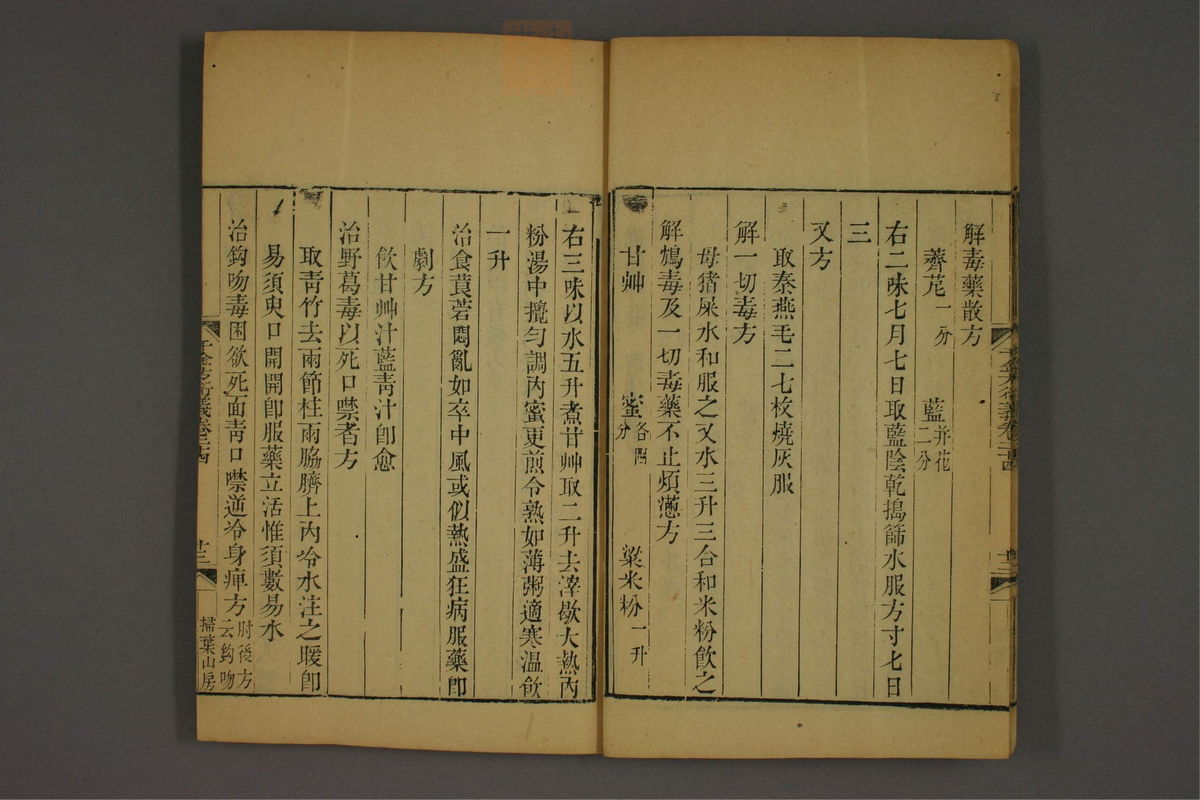 解毒藥散方
薺苨一分 藍并花二分
右二味七月七日取藍陰乾搗篩水服方寸七日
三
又方
取秦燕毛二七枚燒灰服
解一切毒方
母猪屎水和服之又水三升三合和米粉飲之
解鴆毒及一切毒藥不止煩懣方
甘艸 蜜各四分 粱米粉一升
千金方衍義卷二十四
右三味以水五升煮甘艸取二升去滓歇大熱內
粉湯中攪勻調內蜜更煎令熟如薄粥適寒溫飲
一升
治食莨菪悶亂如卒中風或似熱盛狂病服藥即
劇方
飲甘艸汁藍青汁即愈
治野葛毒以死口噤者方
取青竹去兩節柱兩脇臍上內冷水注之暖即
易須臾口開開即服藥立活惟須數易水
治鈎吻毒困欲死面青口噤逆冷身痺方肘後方云鈎吻
千金方衍義卷二十四
廿三
掃葉山房